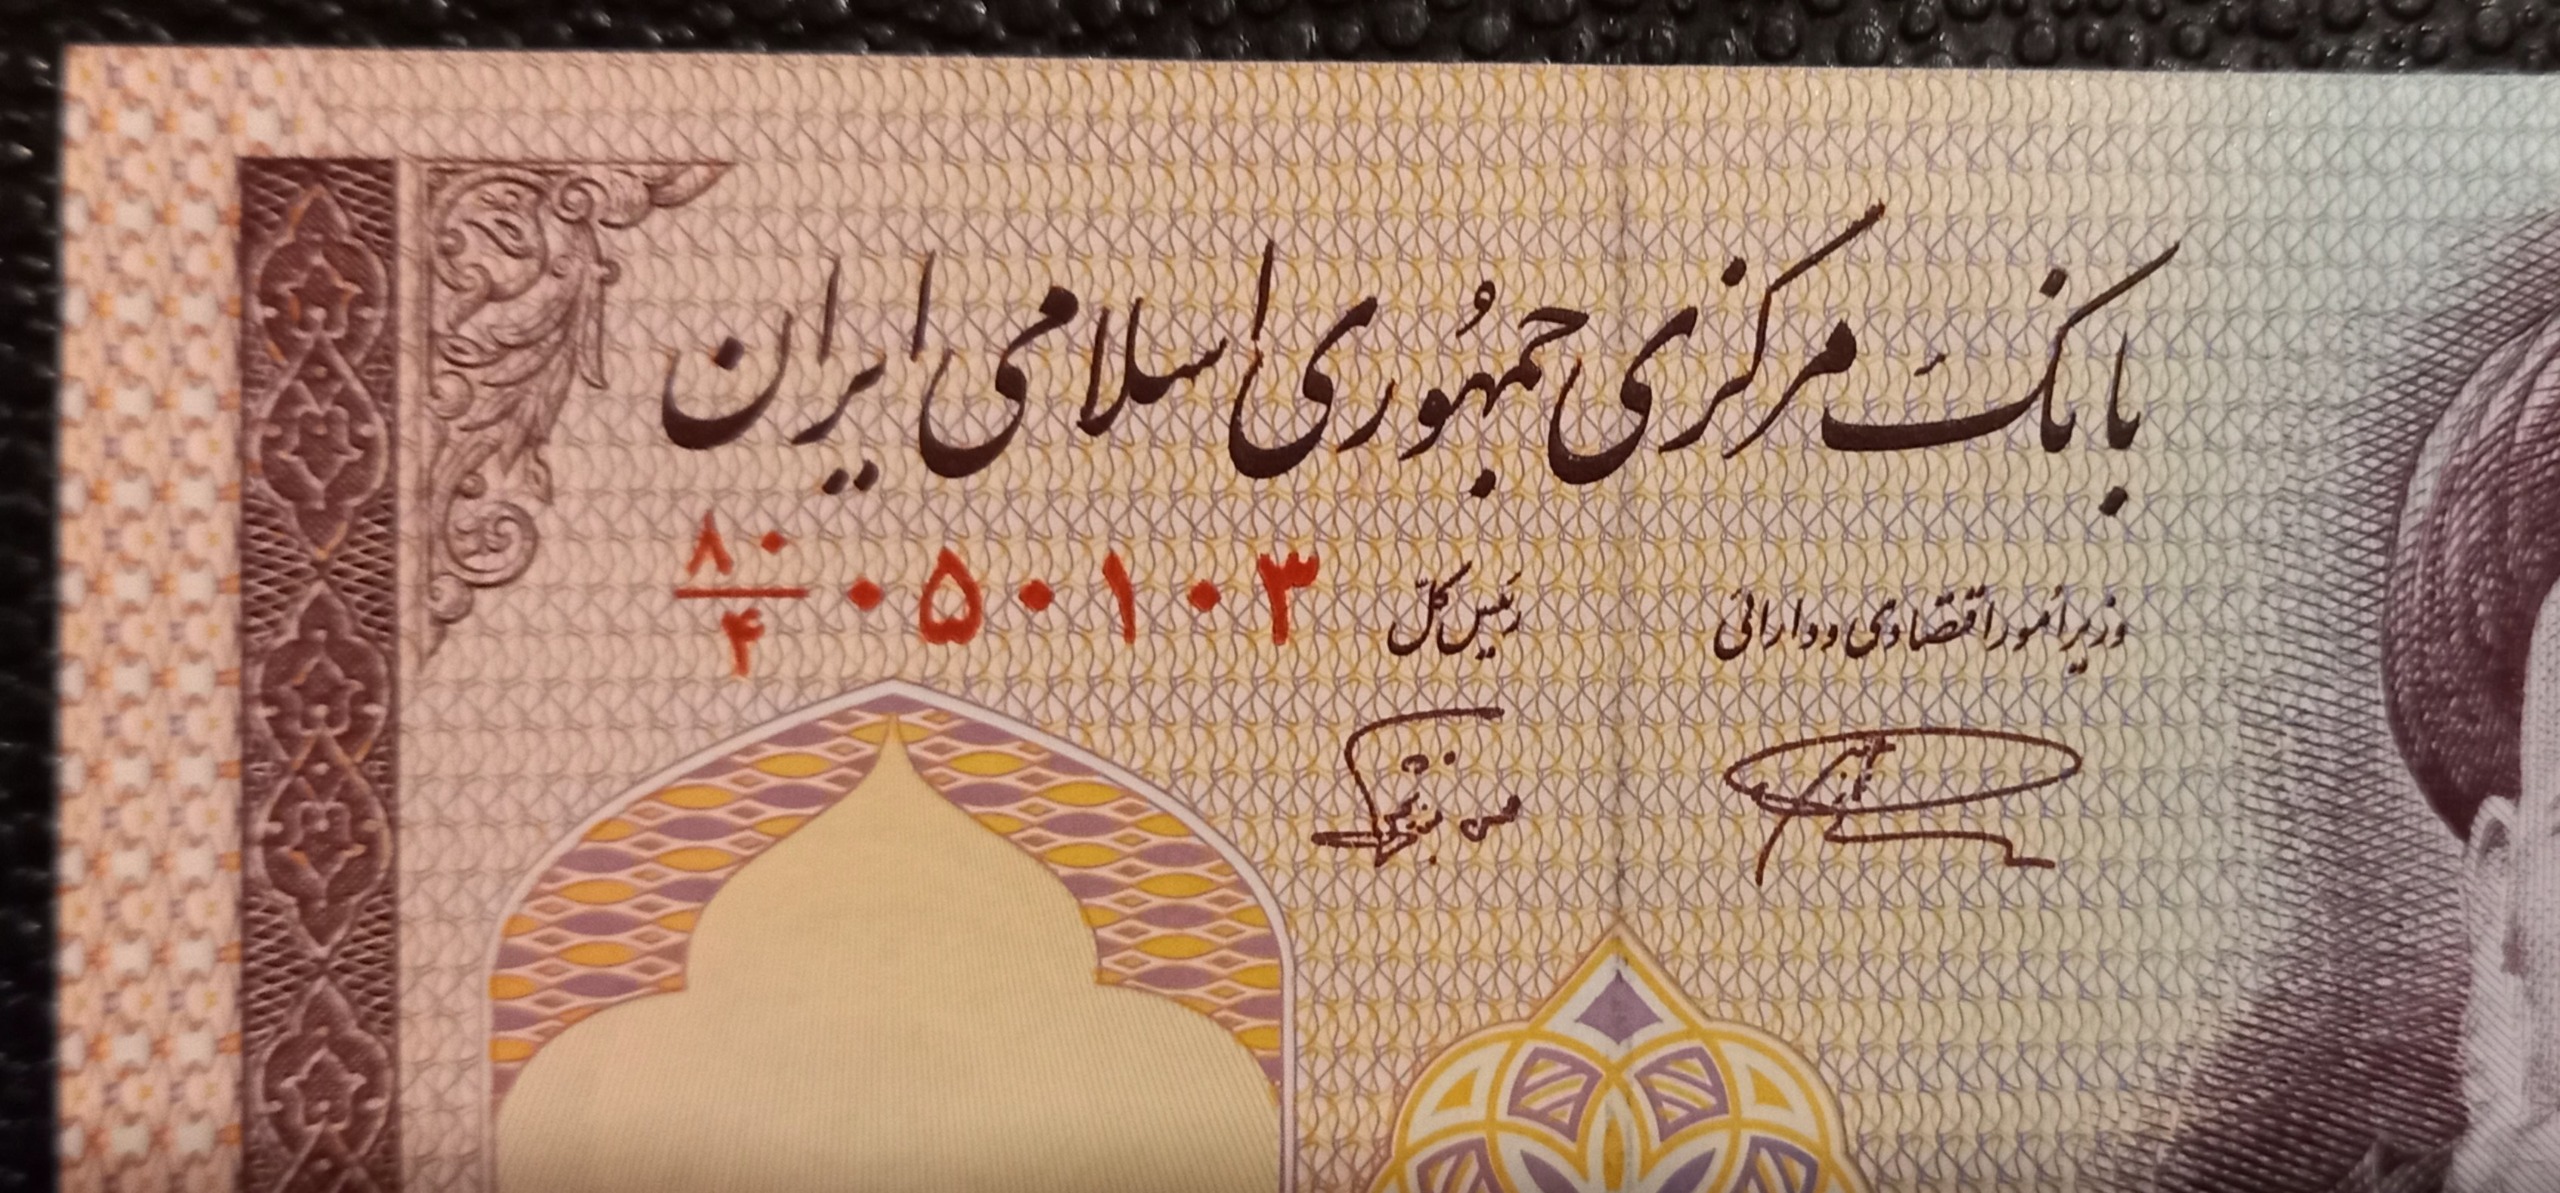 بانک مرکزی جمهوری اسلامی ایران
۸۰/۴ ۰۵۰۱۰۳
وزیر امور اقتصادی و دارائی رئیس کل